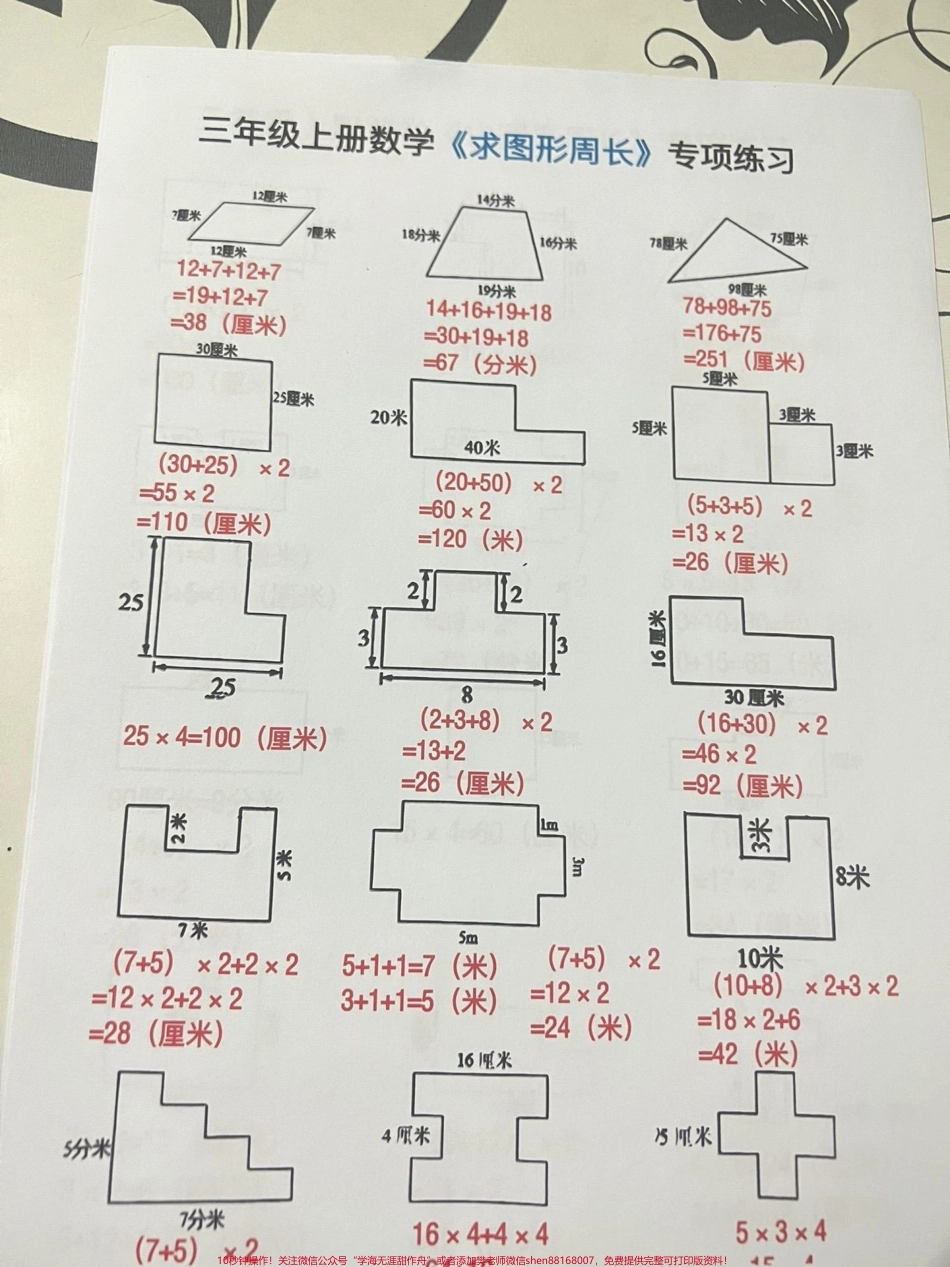 三年级上册数学《求图形周长》专项练习
12厘米
7厘米
7厘米
12厘米
12+7+12+7
=19+12+7
=38（厘米）
14分米
18分米
16分米
19分米
14+16+19+18
=30+19+18
=67（分米）
78厘米
75厘米
98厘米
78+98+75
=176+75
=251（厘米）
30厘米
25厘米
（30+25）×2
=55×2
=110（厘米）
20米
40米
（20+50）×2
=60×2
=120（米）
5厘米
5厘米
3厘米
3厘米
（5+3+5）×2
=13×2
=26（厘米）
25
25
25×4=100（厘米）
2
2
3
3
8
（2+3+8）×2
=13+2
=26（厘米）
16厘米
30厘米
（16+30）×2
=46×2
=92（厘米）
2米
5米
7米
（7+5）×2+2×2
=12×2+2×2
=28（厘米）
1m
3m
5m
5+1+1=7（米）
3+1+1=5（米）
（7+5）×2
=12×2
=24（米）
3米
8米
10米
（10+8）×2+3×2
=18×2+6
=42（米）
5分米
7分米
（7+5）×2
16厘米
4厘米
16×4+4×4
5厘米
5×3×4
10秒钟操作！关注微信公众号“学海无涯甜作舟”或者添加樊老师微信shen88168007，免费提供完整可打印版资料！